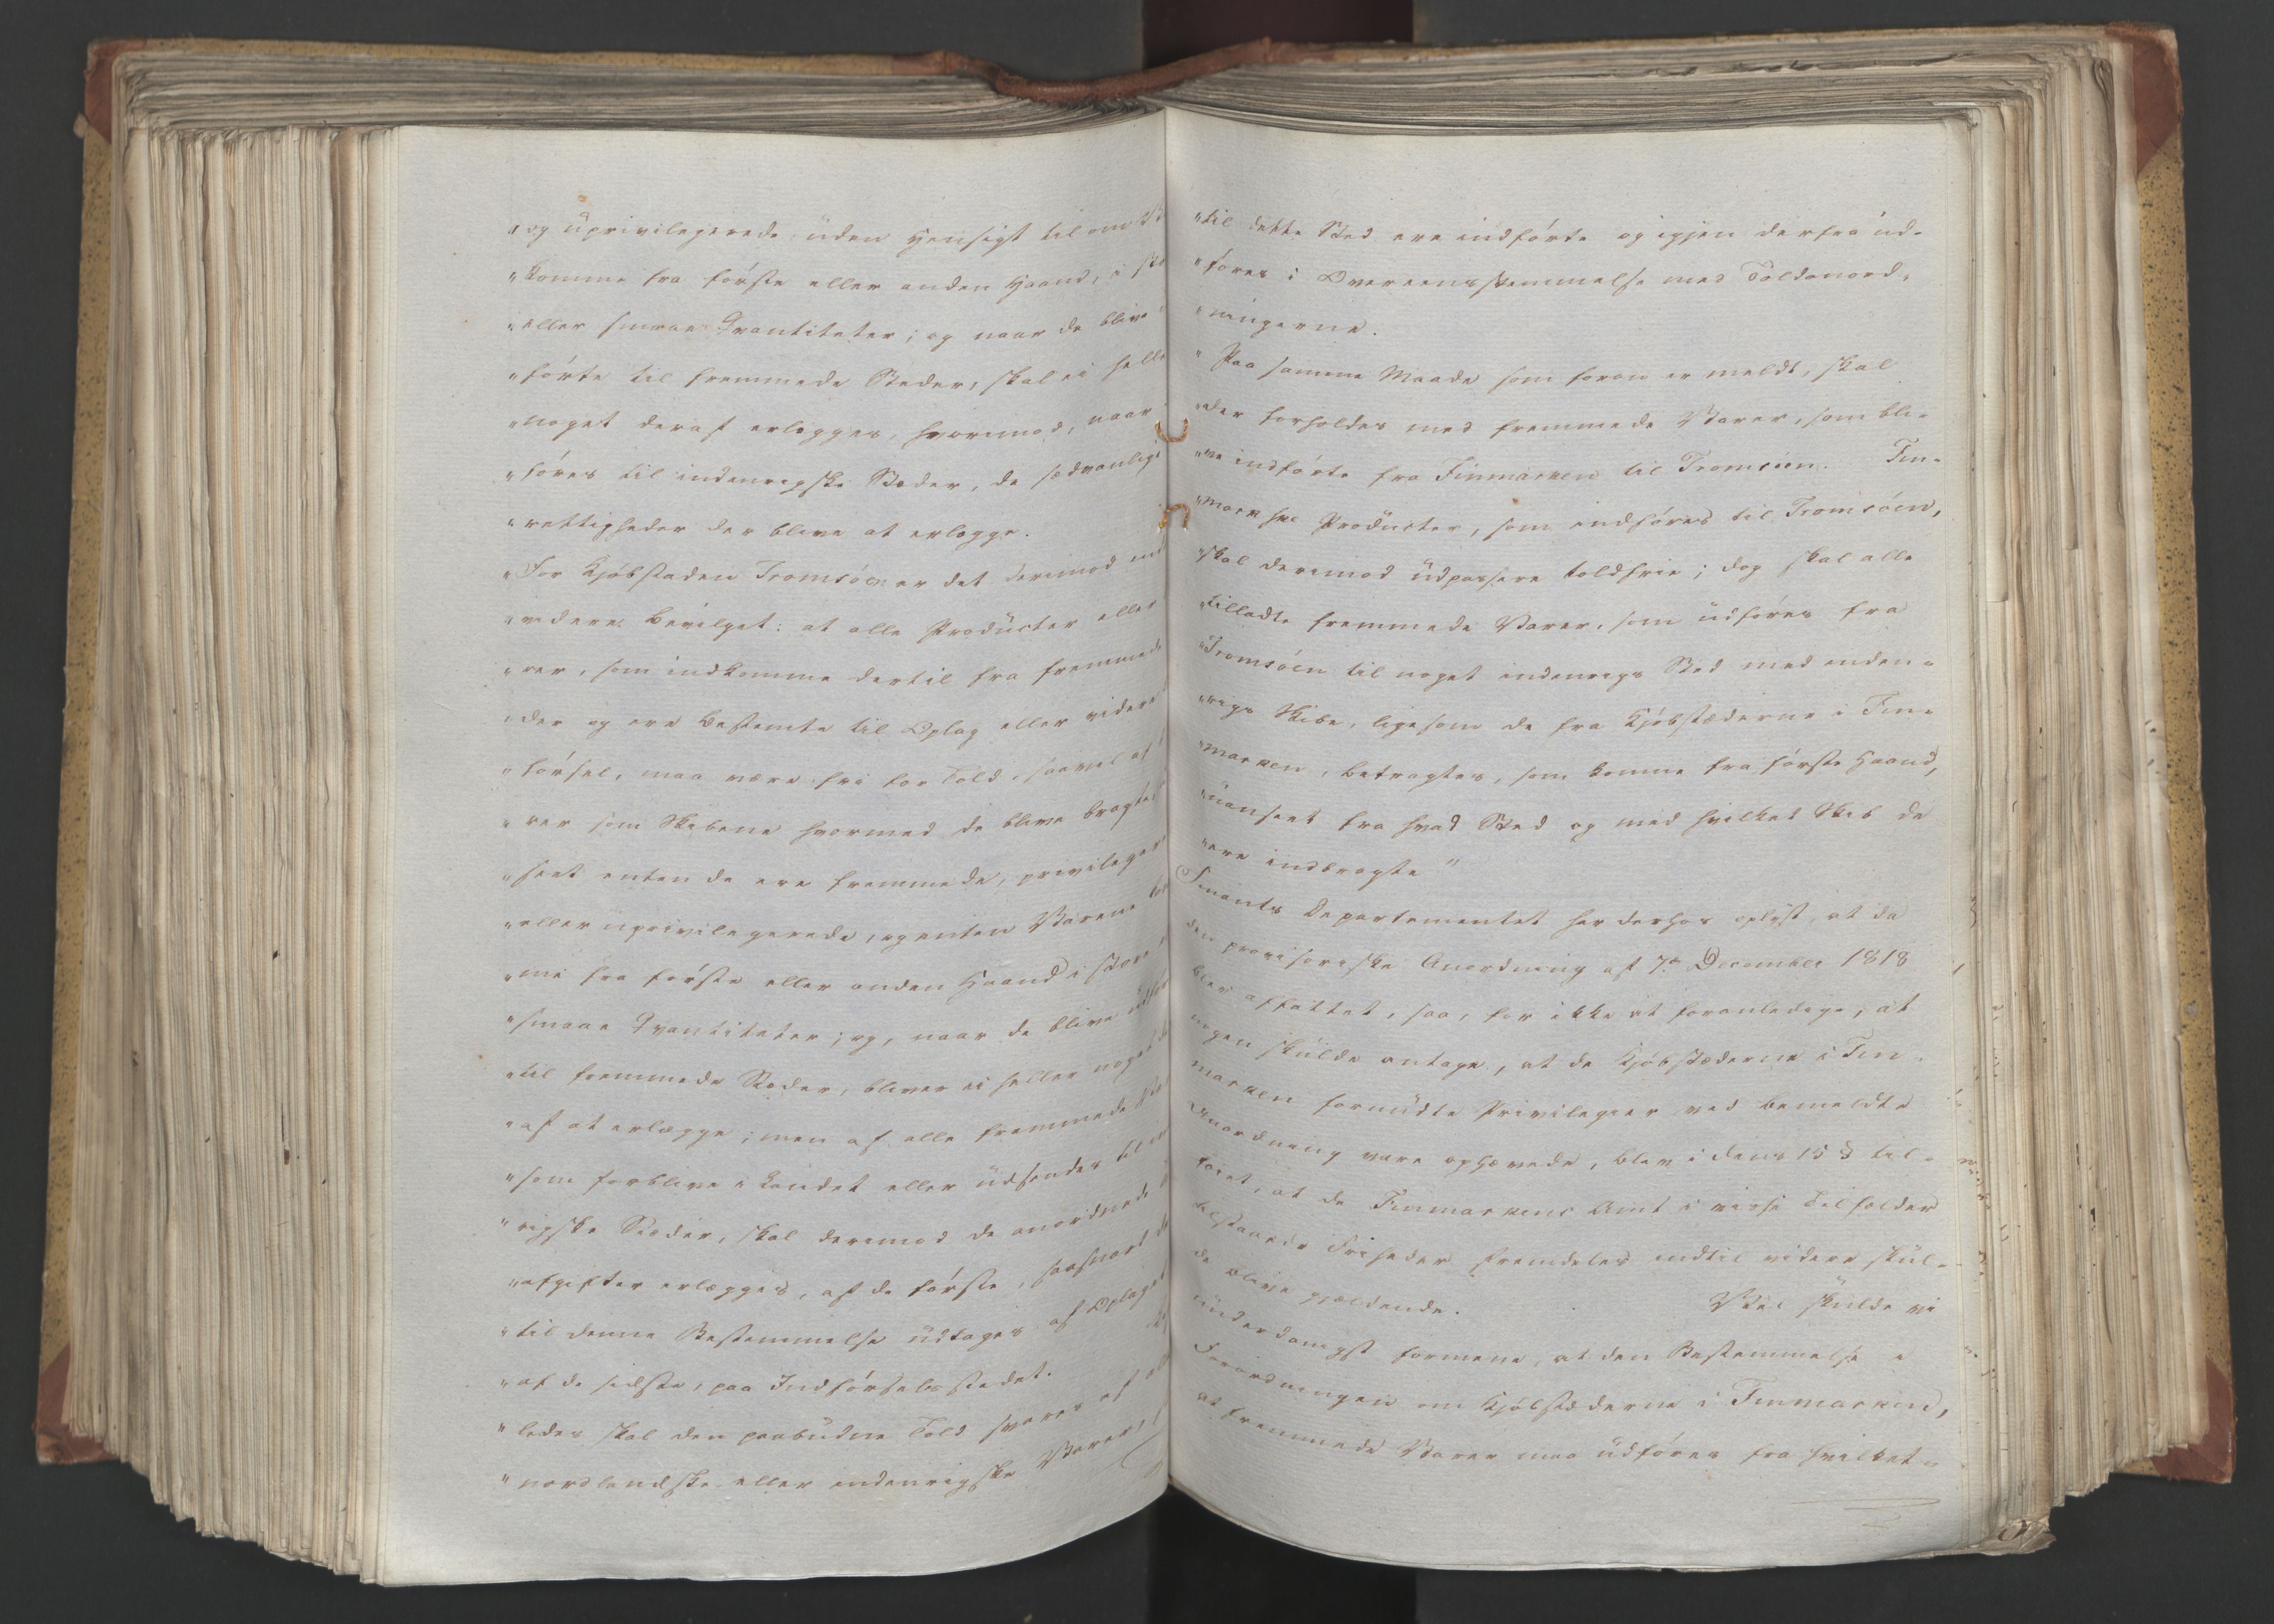 "og üprivilegerede üden Hensigt til om de
"komme fra første eller anden Haand, i
"eller smaae Qvantiteter; og naar de blive
"førte til fremmede Steder, skal ei
"noget deraf erlægges, hvorimod, naar
"føres til indenrigske Stæder, de sædvanlige
"rettigheder der blive at erlægge.
"For Kjøbstaden Tromsöen er det derimod
"videre bevilget: at alle Prodücter eller
"rer, som indkomme dertil fra fremmede
"der og ere bestemte til Oplag eller videre
"førsel, maa være fri for Told, saavel af
"rer som Skibene hvormed de blive bragte,
"seet enten de ere fremmede, privileger
"eller üprivilegerede, og enten Varene
"me fra første eller anden Haand i store
"smaae Qvantiteter; og, naar de blive üdfør
"til fremmede Stæder, bliver ei heller noget
"af at erlægge; men af alle fremmede
"som forblive i Landet eller üdsendes til
"rigske Stæder, skal derimod de anordnede
"afgifter erlægges, af de første, saasnart de
"til denne Bestemmelse üdtages af Oplaget
"af de sidste, paa Indførselsstedet.
"ledes skal den paabüdne Told svares af
"nordlandske eller indenrigske Varer,
"til dette Sted ere indførte og igjen derfra üd-
"føres i Overeensstemmelse med Toldanord-
"ningerne.
"Paa samme Maade som foran er meldt, skal
"der forholdes med fremmede Varer, som bli-
"ve indførte fra Finmarken til Tromsöen. Fin-
"markske Prodücter, som indføres til Tromsöen,
"skal derimod üdpassere toldfrie; dog skal alle
"tilladte fremmede Varer, som üdføres fra
"Tromsöen til noget indenrigs Sted med inden-
"rigs Skibe, ligesom de fra Kjøbstæderne i Fin-
"marken, betragtes, som komme fra første Haand,
"üanseet fra hvad Sted og med hvilket Skib de
"ere indbragte"
Finants Departementet har derhos oplyst, at da
den provisoriske Anordning af 7de December 1818
blev affattet, saa, for ikke at foranledige, at
nogen skülde antage, at de Kjøbstæderne i Fin-
marken foründte Privilegier ved bemeldte
Anordning vare ophævede, blev i dens 15 § til-
føiet, at de Finmarkens Amt i visse Tilfælder
tilstaaede Friheder fremdeles indtil videre skül-
de blive gjældende. Vel skülde vi
ünderdanigst formene, at den Bestemmelse i
Forordningen om Kjøbstæderne i Finmarken,
at fremmede Varer maa üdføres fra hvilket-